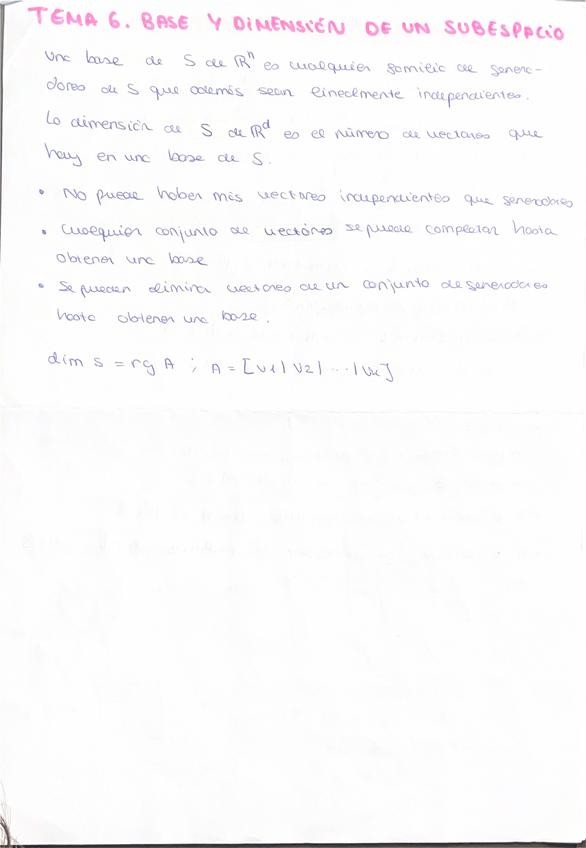 TEMA 6. BASE Y DIMENSIÓN DE UN SUBESPACIO
Una base de S de ℝⁿ es cualquier familia de genera-
dores de S que además sean linealmente independientes.
La dimensión de S de ℝᵈ es el número de vectores que
hay en una base de S.
• No puede haber más vectores independientes que generadores
• Cualquier conjunto de vectores se puede completar hasta
obtener una base
• Se pueden eliminar vectores de un conjunto de generadores
hasta obtener una base.
dim S = rg A ; A = [v1 | v2 | ... | vk]